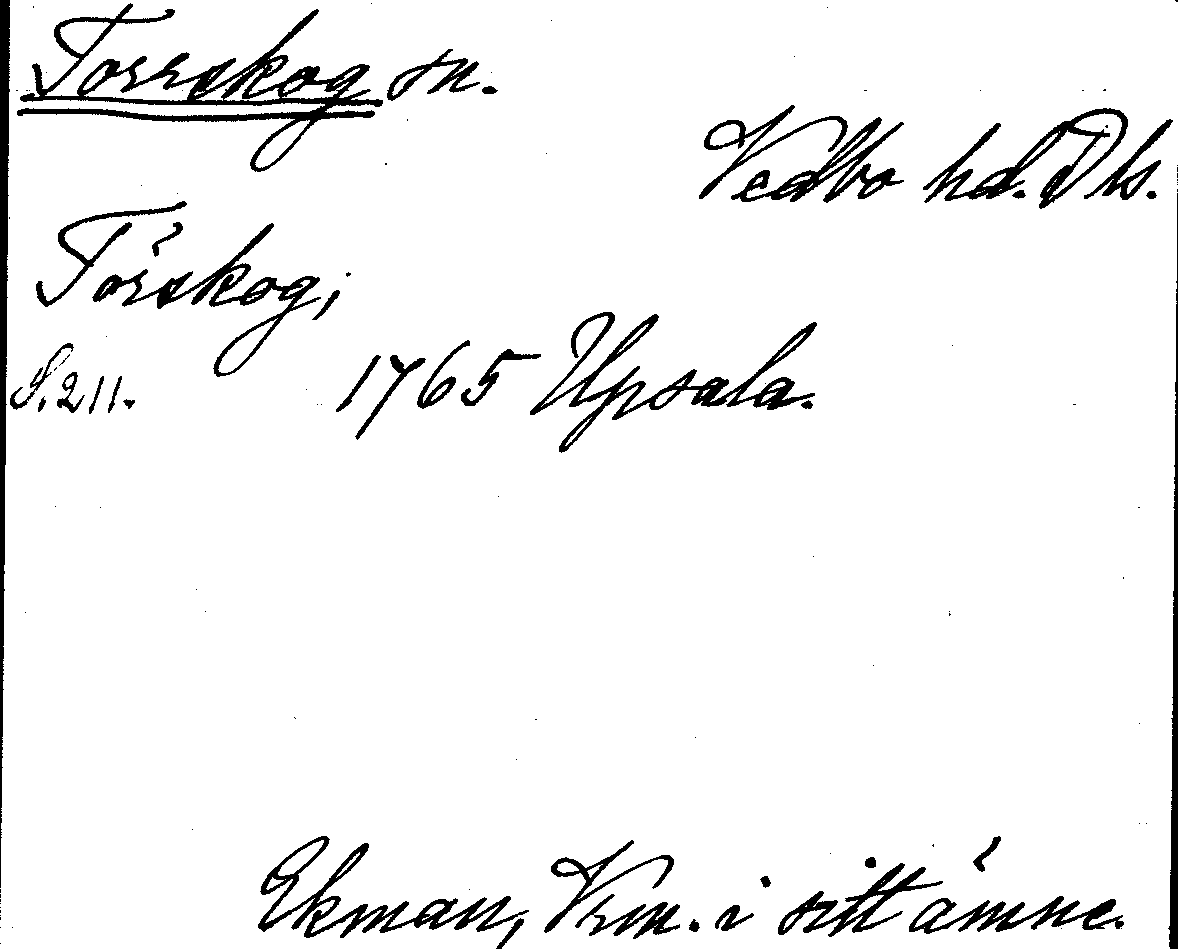 Torrskog sn.
Vedbo hd. Dls.
Törskog;
S. 211. 1765 Upsala.
Ekman, Vrm. i sitt ämne.